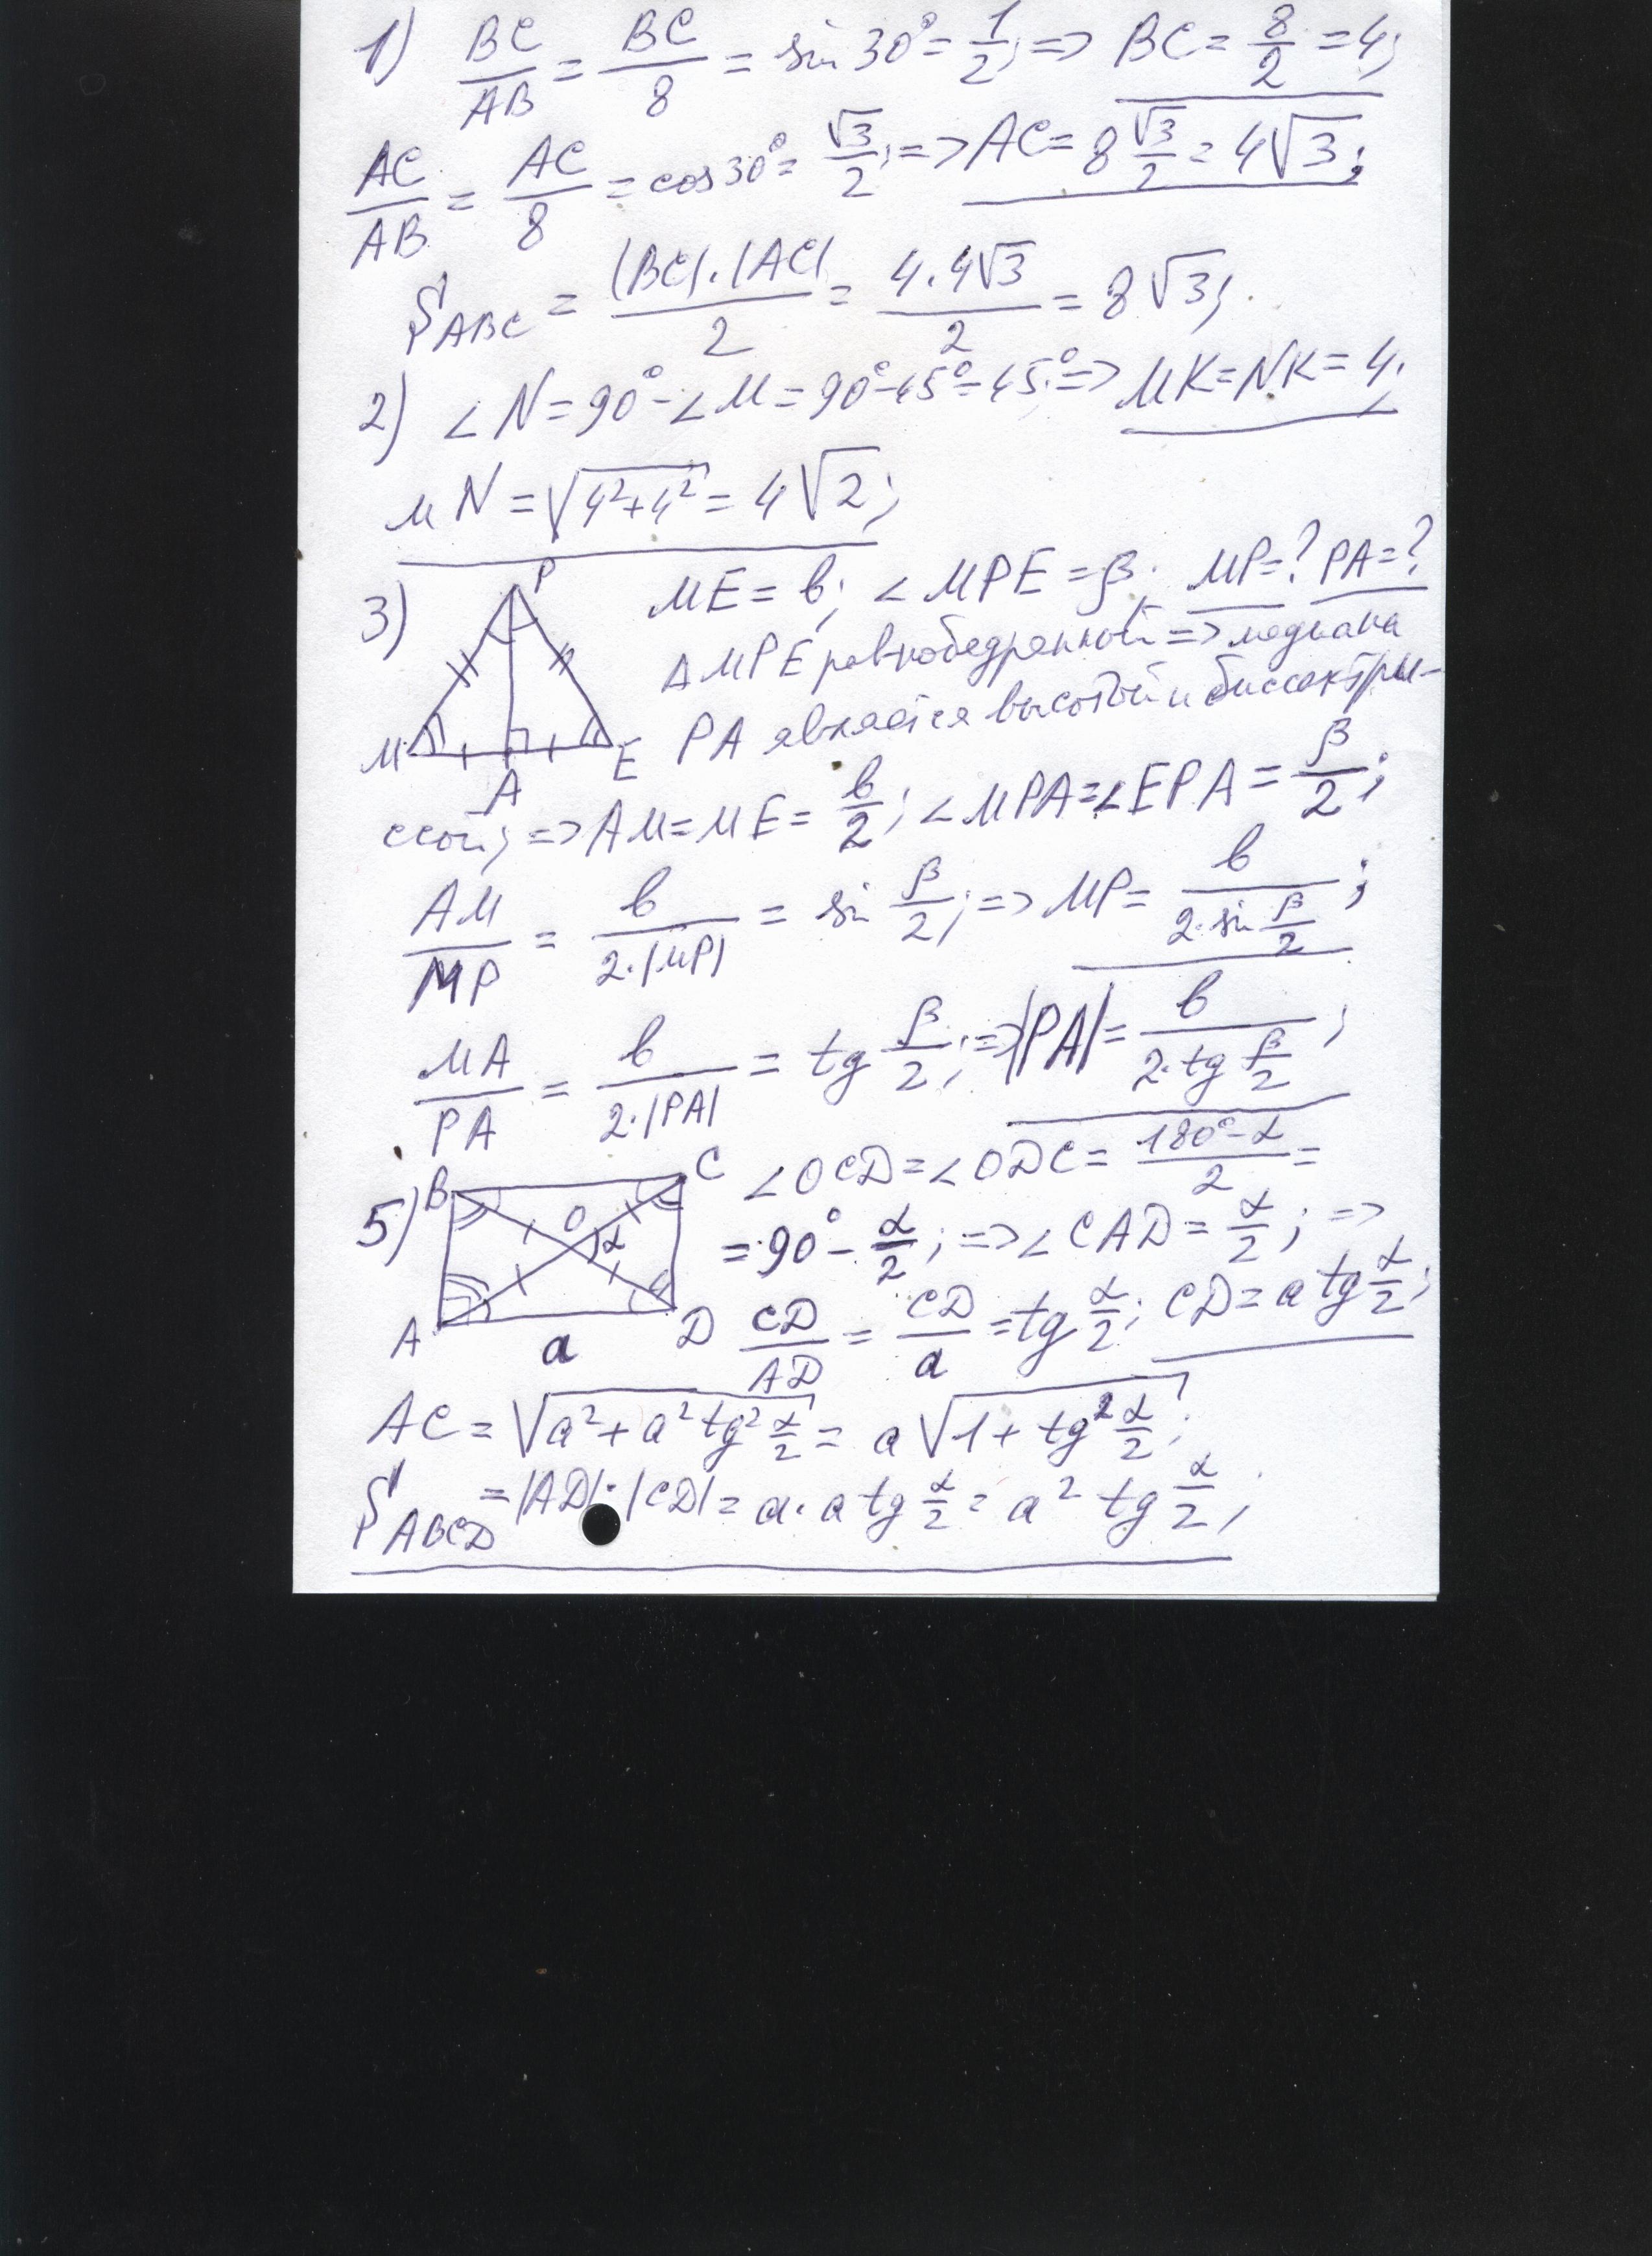 1) BC/AB = BC/8 = sin 30° = 1/2; => BC = 8/2 = 4;
AC/AB = AC/8 = cos 30° = √3/2; => AC = 8 √3/2 = 4√3;
S ABC = |BC|·|AC|/2 = 4·4√3/2 = 8√3;
2) ∠N = 90° - ∠M = 90° - 45° = 45°; => MK = NK = 4.
MN = √(4²+4²) = 4√2;
3) P M A E ME = b; ∠MPE = β. MP = ? PA = ?
ΔMPE равнобедренной => медиана
PA является высотой и биссектри-
ссой; => AM = ME = b/2; ∠MPA = ∠EPA = β/2;
AM/MP = b/(2·|MP|) = sin β/2; => MP = b/(2·sin β/2);
MA/PA = b/(2·|PA|) = tg β/2; => |PA| = b/(2·tg β/2);
5) B C O α A a D ∠OCD = ∠ODC = (180°-α)/2 =
= 90° - α/2; => ∠CAD = α/2; =>
CD/AD = CD/a = tg α/2; CD = a tg α/2;
AC = √(a² + a² tg² α/2) = a√(1 + tg² α/2);
S ABCD = |AD|·|CD| = a·a tg α/2 = a² tg α/2;